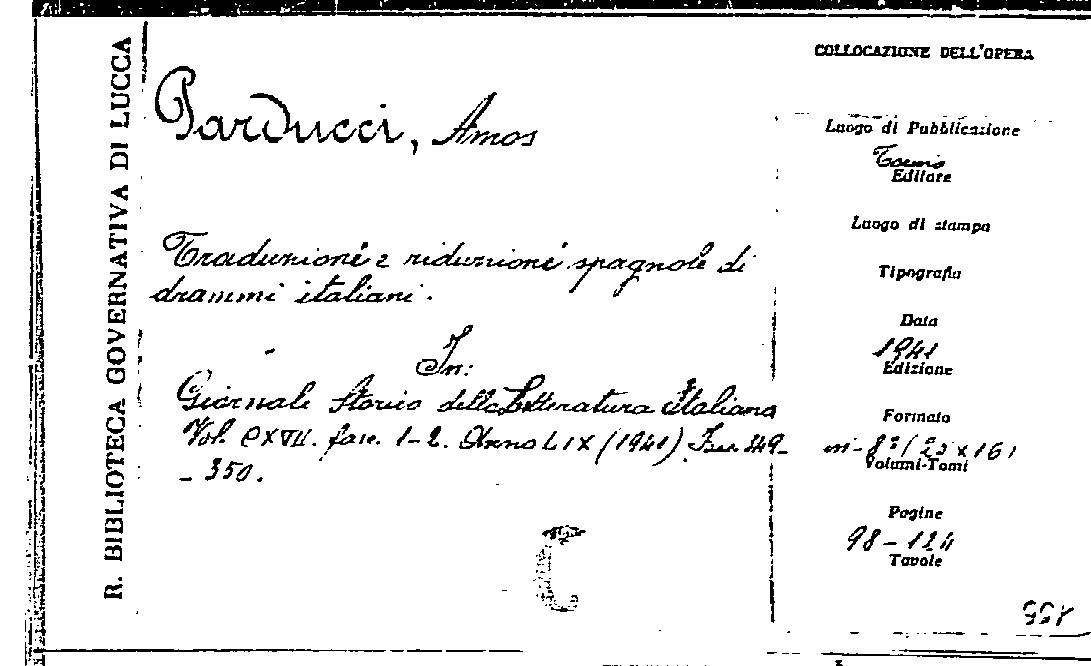 R. BIBLIOTECA GOVERNATIVA DI LUCCA
Parducci, Amos
Traduzioni e riduzioni spagnole di
drammi italiani.
In:
Giornale Storico della Letteratura Italiana
Vol. CXVII. fasc. 1-2. Anno LIX (1941). Fasc. 349-
- 350.
C
COLLOCAZIONE DELL'OPERA
Luogo di Pubblicazione
Torino
Editore
Luogo di stampa
Tipografia
Data
1941
Edizione
Formato
in-8º (25 x 16)
Volumi-Tomi
Pagine
98-124
Tavole